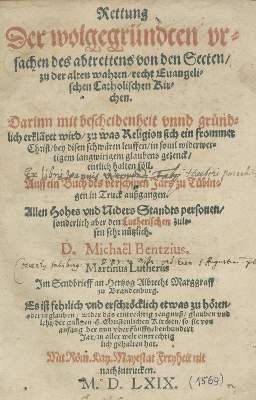 Rettung
Der wolgegründten vr-
sachen des abtrettens von den Secten/
zu der alten wahren/ recht Euangeli-
schen Catholischen Kir-
chen.
Darinn mit bescheidenheit vnnd gründ-
lich erkläret wird/ zu was Religion sich ein frommer
Christ/ bey disen schwären leuffen/ in souil widerwer-
tigem langwürigem glaubens gezenck/
entlich halten söll.
Auff ein Buch des
zu Tübin-
gen in Truck außgangen.
Allen Hohes vnd Niders Standts personen/
sonderlich aber den Lutherischen zule-
sen sehr nützlich.
D. Michaël Bentzius.
Martinus Lutherus
Im Sendbrieff an Hertzog Albrecht Marggraff
zu Brandenburg.
Es ist fehrlich vnd erschröcklich etwas zu hören/
oder zu glauben/ wider das eintrechtig zeugnuß/ glauben vnd
lehr der gantzen H. Christlichen Kirchen/ so sie von
anfang her nun vber fünfftzehenhundert
Jar/ in aller welt eintrechtig-
lich gehalten hat.
Mit Röm. Kay. Mayestat Freyheit nit
nachzutrucken.
M. D. LXIX. (1569)